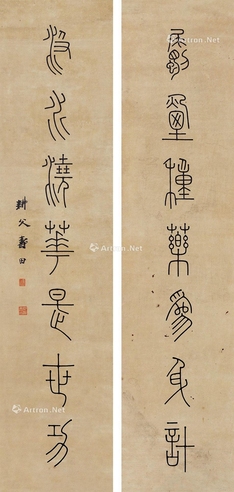 種藥為身計
汲水澆華是世功
耕父壽田
Artron.Net
Artron.Net
Artron.Net
Artron.Net